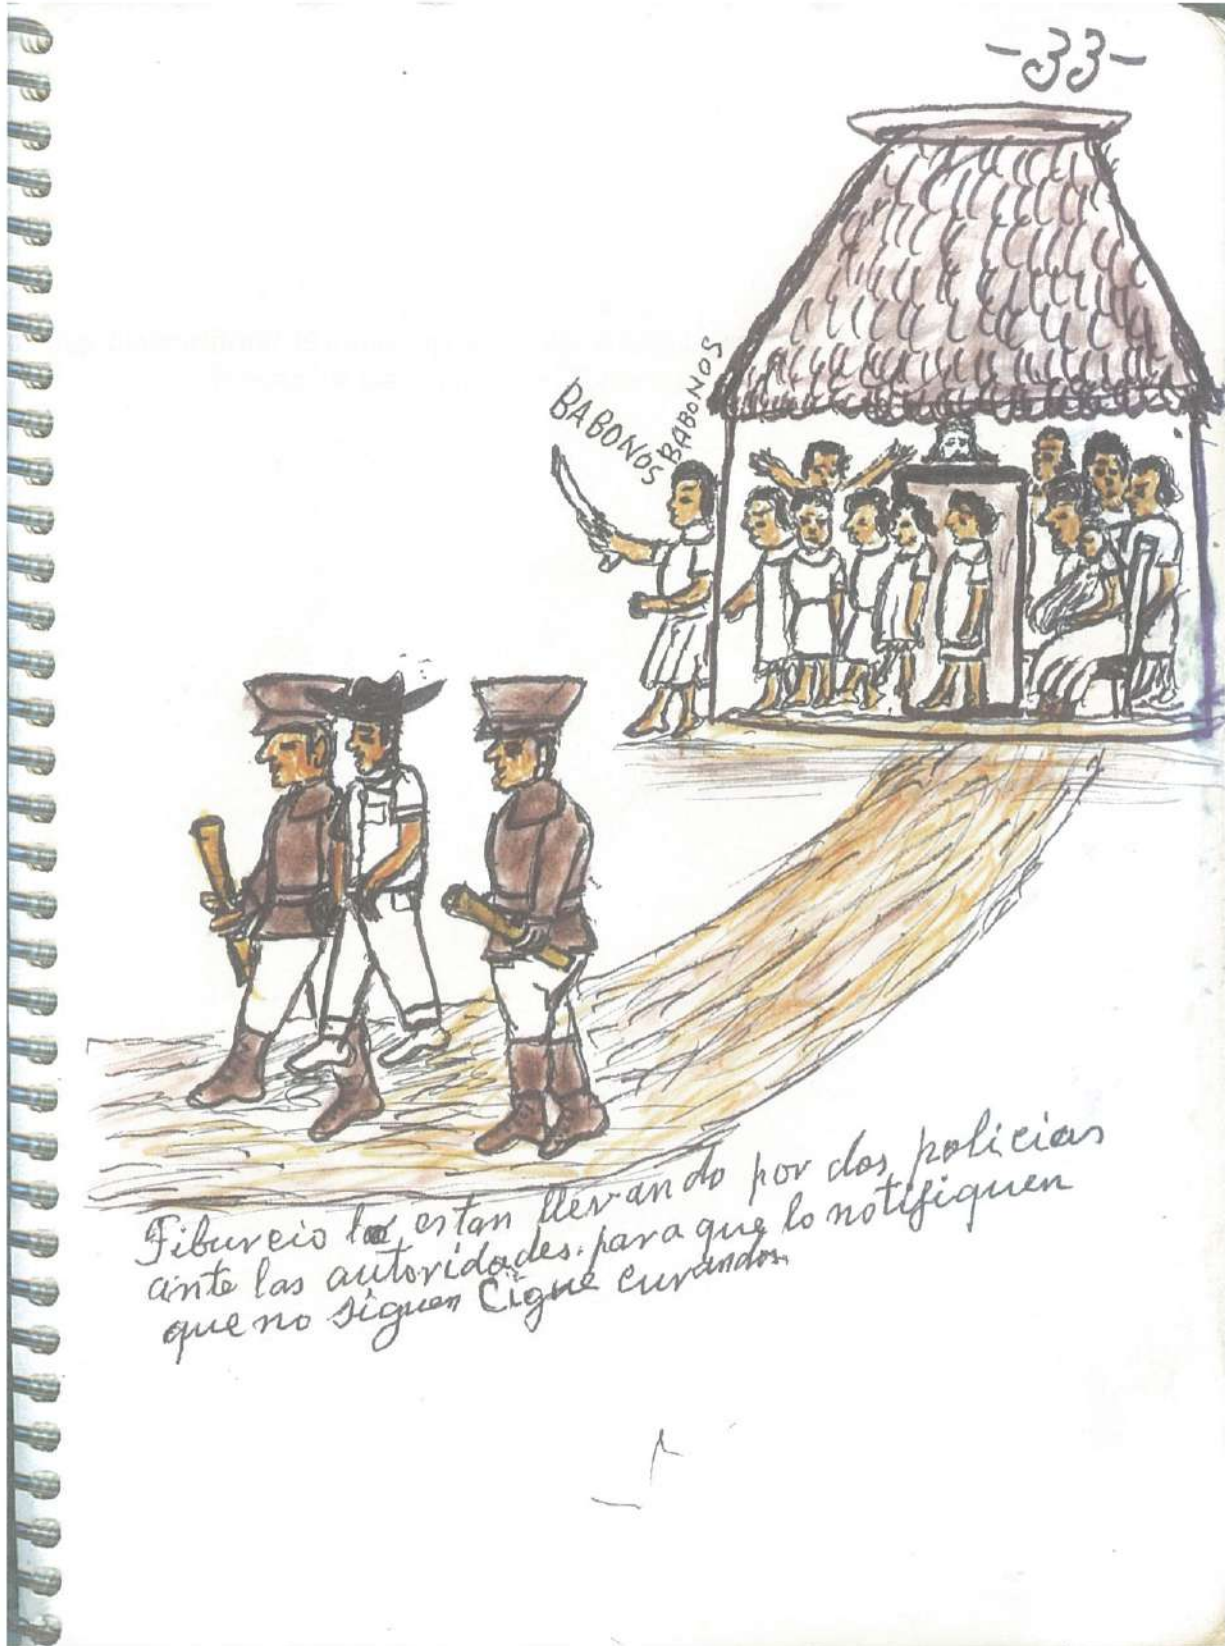 -33-
BABONOS
BABONOS
Tiburcio lo estan llevando por dos policias
ante las autoridades. para que lo notifiquen
que no siguen Cigue curandos.